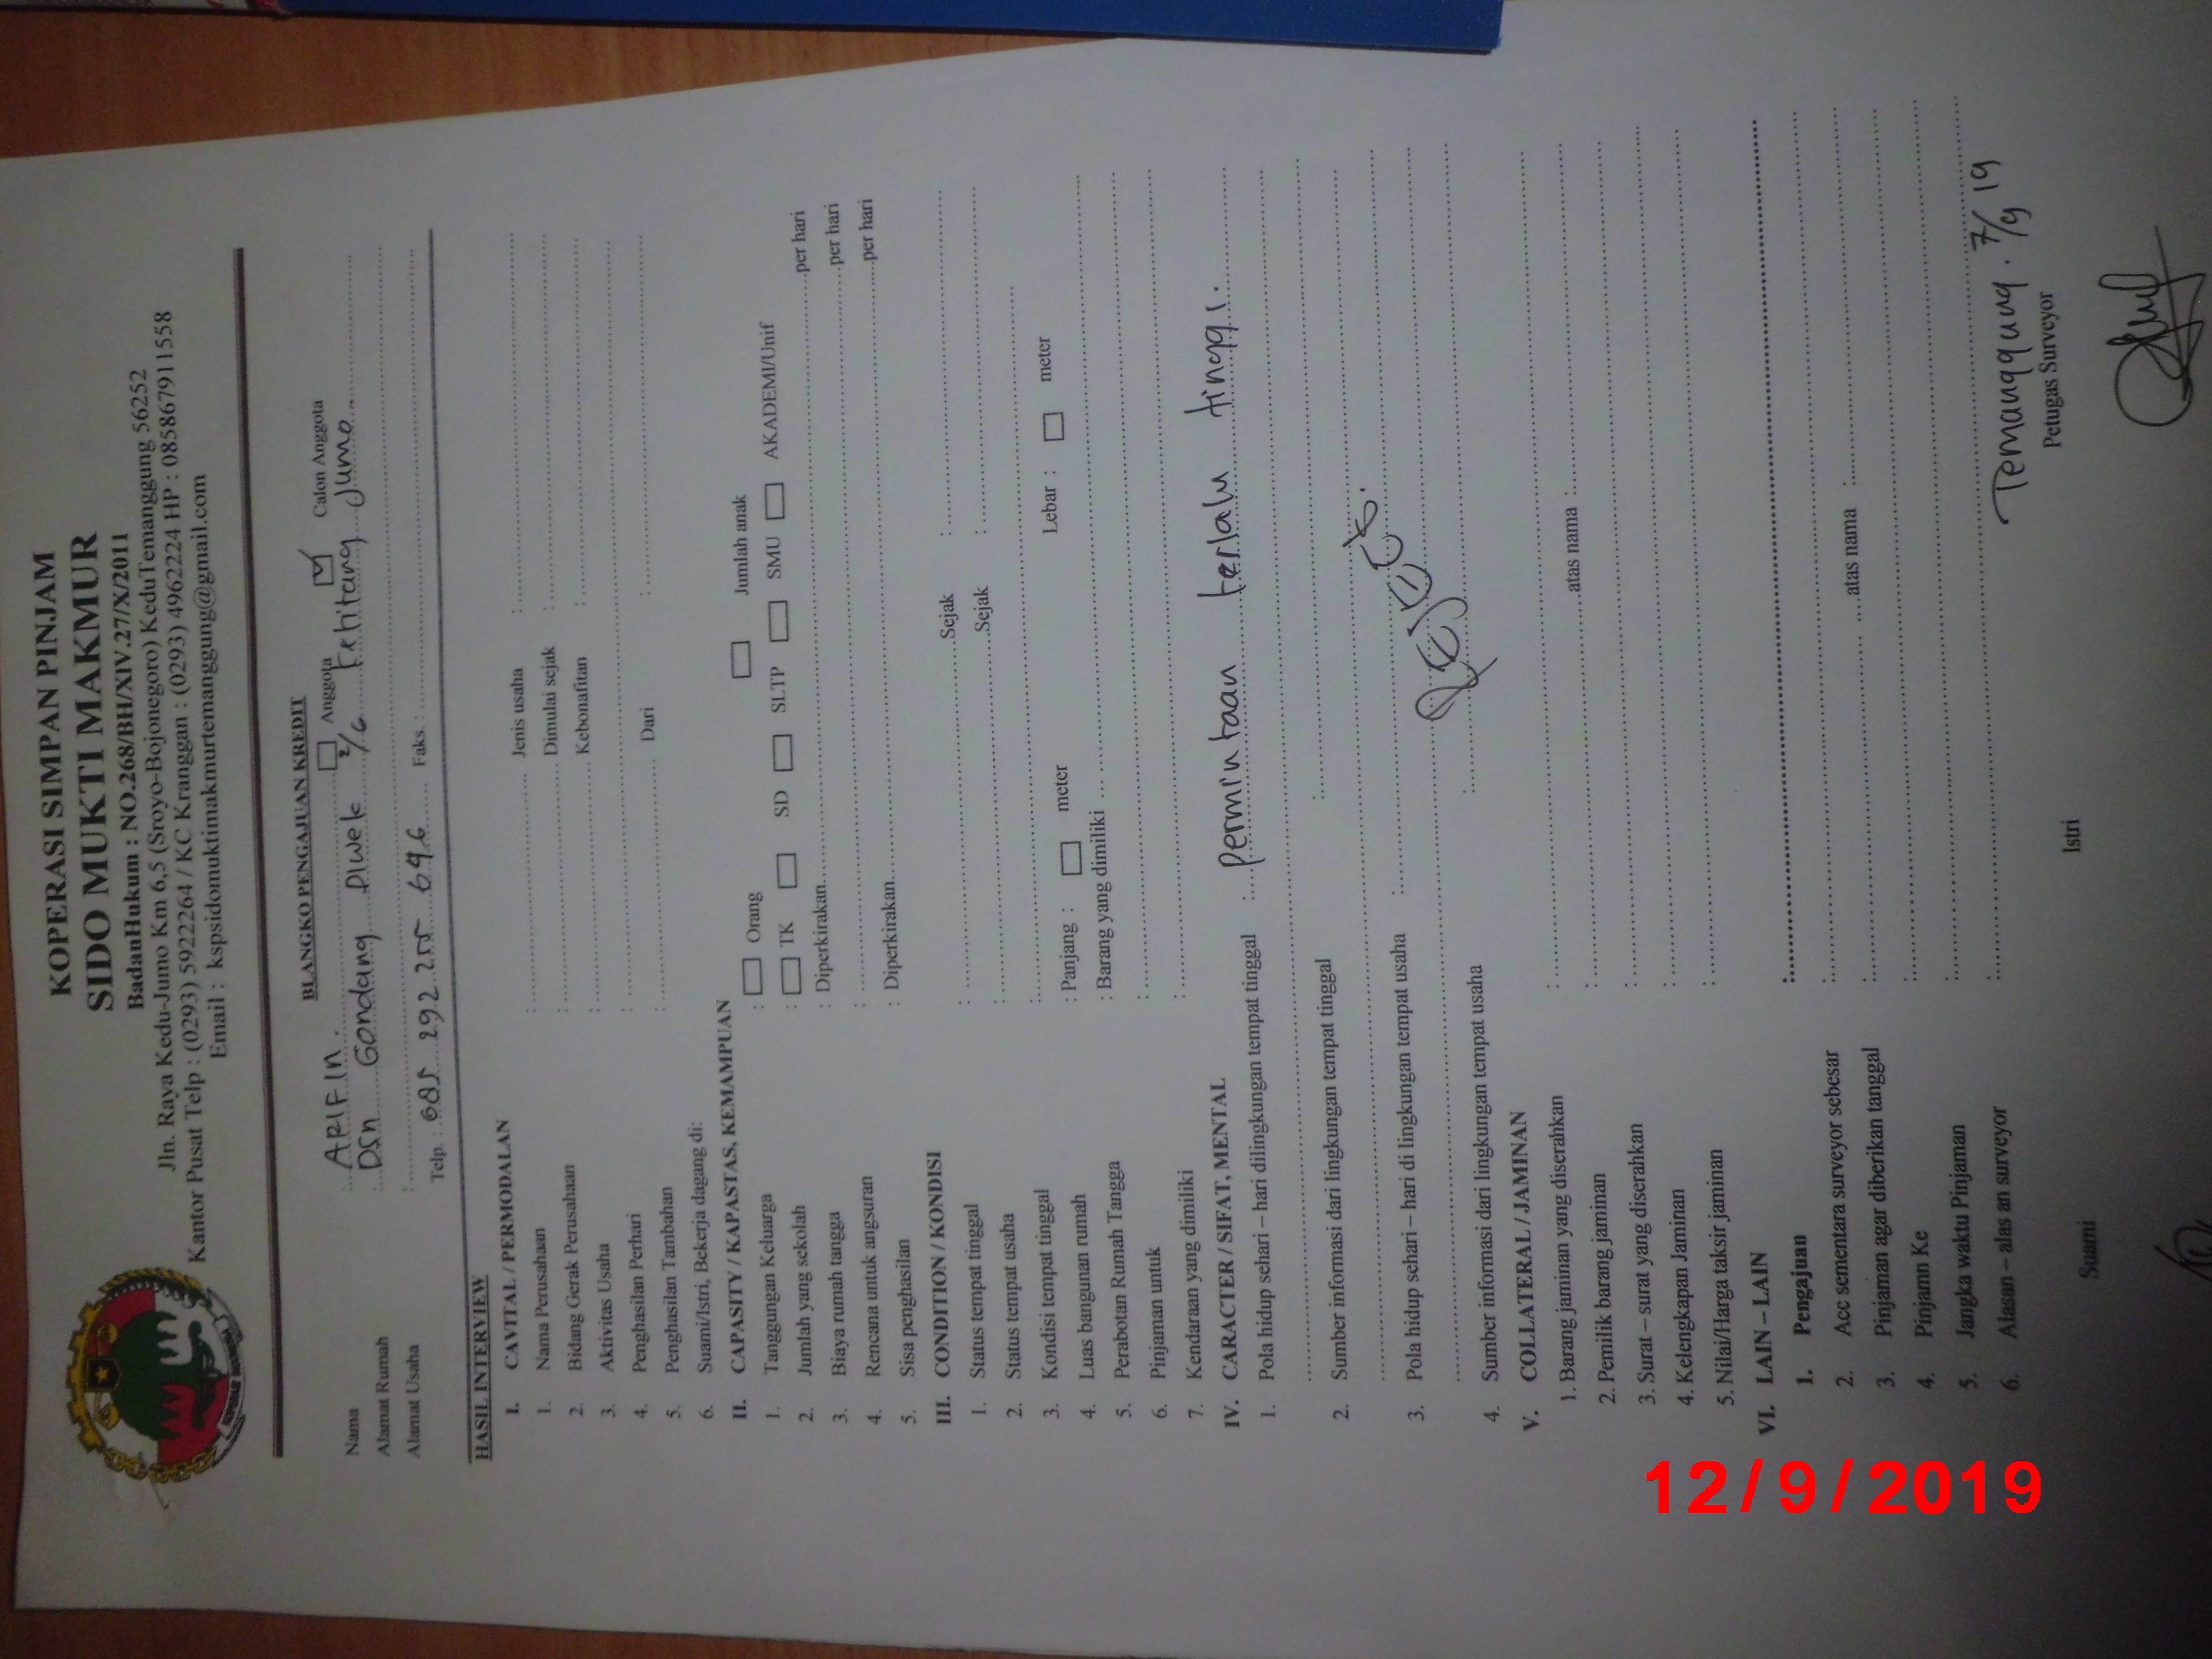 KOPERASI SIMPAN PINJAM
SIDO MUKTI MAKMUR
BadanHukum : NO.268/BH/XIV.27/X/2011
Jln. Raya Kedu-Jumo Km 6,5 (Sroyo-Bojonegoro) KeduTemanggung 56252
Kantor Pusat Telp : (0293) 5922264 / KC Kranggan : (0293) 4962224 HP : 085867911558
Email : kspsidomuktimakmurtemanggung@gmail.com
BLANGKO PENGAJUAN KREDIT
Anggota Calon Anggota
Nama : ARIFIN.
Alamat Rumah : DSn Gondang Diwek 2/6 Jumo
Alamat Usaha :
Telp : 085 292 255 696 Faks. :
HASIL INTERVIEW
I. CAVITAL / PERMODALAN
1. Nama Perusahaan : Jenis usaha :
2. Bidang Gerak Perusahaan : Dimulai sejak :
3. Aktivitas Usaha : Kebonafitan :
4. Penghasilan Perhari :
5. Penghasilan Tambahan : Dari :
6. Suami/Istri, Bekerja dagang di:
II. CAPASITY / KAPASTAS, KEMAMPUAN
1. Tanggungan Keluarga : Orang Jumlah anak
2. Jumlah yang sekolah : TK SD SLTP SMU AKADEMI/Unif
3. Biaya rumah tangga : Diperkirakan per hari
4. Rencana untuk angsuran : per hari
5. Sisa penghasilan : Diperkirakan per hari
III. CONDITION / KONDISI
1. Status tempat tinggal : Sejak :
2. Status tempat usaha : Sejak :
3. Kondisi tempat tinggal :
4. Luas bangunan rumah : Panjang : meter Lebar : meter
5. Perabotan Rumah Tangga : Barang yang dimiliki
6. Pinjaman untuk :
7. Kendaraan yang dimiliki :
IV. CARACTER / SIFAT, MENTAL
1. Pola hidup sehari – hari dilingkungan tempat tinggal : permintaan terlalu tinggi.
2. Sumber informasi dari lingkungan tempat tinggal :
3. Pola hidup sehari – hari di lingkungan tempat usaha :
4. Sumber informasi dari lingkungan tempat usaha :
V. COLLATERAL / JAMINAN
1. Barang jaminan yang diserahkan : atas nama :
2. Pemilik barang jaminan :
3. Surat – surat yang diserahkan :
4. Kelengkapan Jaminan :
5. Nilai/Harga taksir jaminan :
VI. LAIN – LAIN
1. Pengajuan :
2. Acc sementara surveyor sebesar :
3. Pinjaman agar diberikan tanggal : atas nama :
4. Pinjamn Ke :
5. Jangka waktu Pinjaman :
6. Alasan – alas an surveyor :
Temanggung. 7/9 19
Suami Istri Petugas Surveyor
12/9/2019